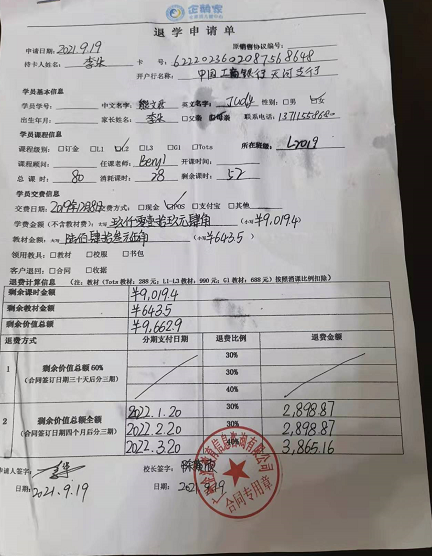 企鹅家
退学申请单
申请日期：2021.9.19 原销售协议编号：
持卡人姓名： 卡 号：6222023602087568648
开户行名称：中国工商银行天河支行
学员基本信息
学员学号： 中文名字： 英文名字：Judy 性别：□男 ☑女
出生年月： 家长姓名： □父亲 ☑母亲 联系电话：
学员课程信息
课程级别：□订金 □L1 ☑L2 □L3 □G1 □Tots 所在班级：L2019
课程顾问： 任课老师：Beryl 开课时间：
总 课 时：80 消耗课时：28 剩余课时：52
学员交费信息
交费日期： 交费方式：□现金 ☑POS □支付宝 □其他
学费金额（不含教材费）：大写 玖仟零壹拾玖元肆角 （小写¥9,019.4）
教材金额：大写 陆佰肆拾叁元伍角 （小写¥643.5）
领用教具：□教材 □校服 □书包
客户退回：□合同 □收据
退费计算信息 （注：教材（Tots教材：288元；L1-L3教材：990元；G1教材：688元）按照消课比例扣除）
剩余课时金额 ¥9,019.4
剩余教材金额 ¥643.5
剩余价值总额 ¥9,662.9
退费方式 分期支付日期 退费比例 退费金额
1 剩余价值总额60% 30%
（合同签订日期三十天后分三期） 30%
40%
2 剩余价值总额全额 2022.1.20 30% 2,898.87
（合同签订日期四个月后分三期） 2022.2.20 30% 2,898.87
2022.3.20 40% 3,865.16
申请人签字： 校长签字：
日期：2021.9.19 日期：2021.9.19
合同专用章